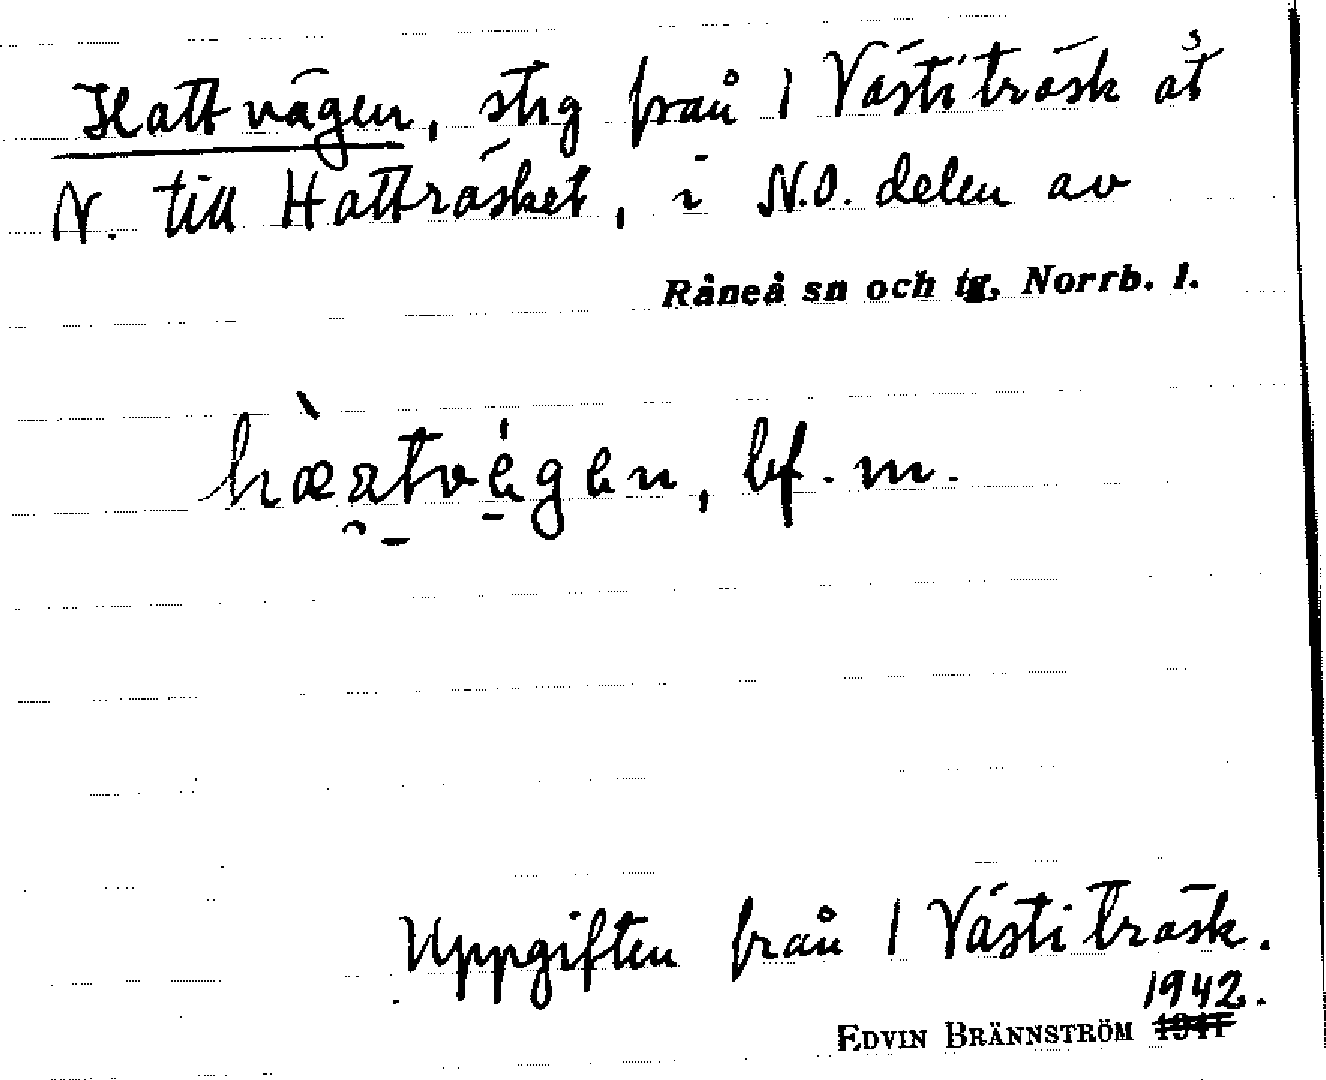 Hattvägen, stig från 1 Västiträsk åt
N. till Hatträsket, i N.O. delen av
Råneå sn och tg, Norrb. l.
hæatvégen, bf. m.
Uppgiften från 1 Västiträsk.
1942.
EDVIN BRÄNNSTRÖM 1941